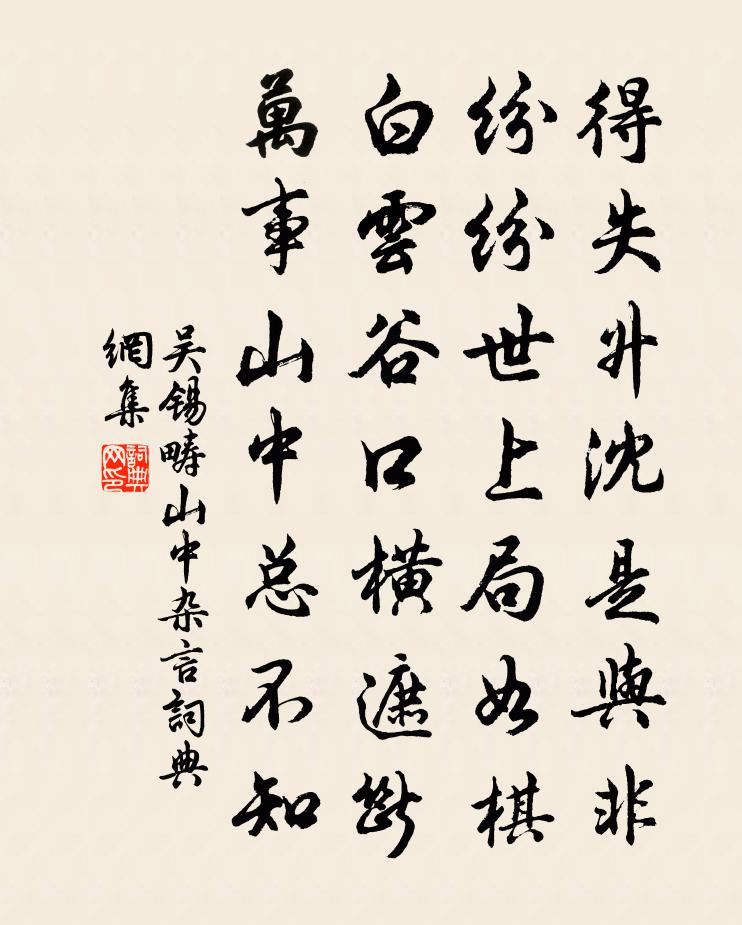 得失升沈是與非
紛紛世上局如棋
白雲谷口橫遮斷
萬事山中总不知
吴锡疇山中杂言詞典
網集
詞典
网印